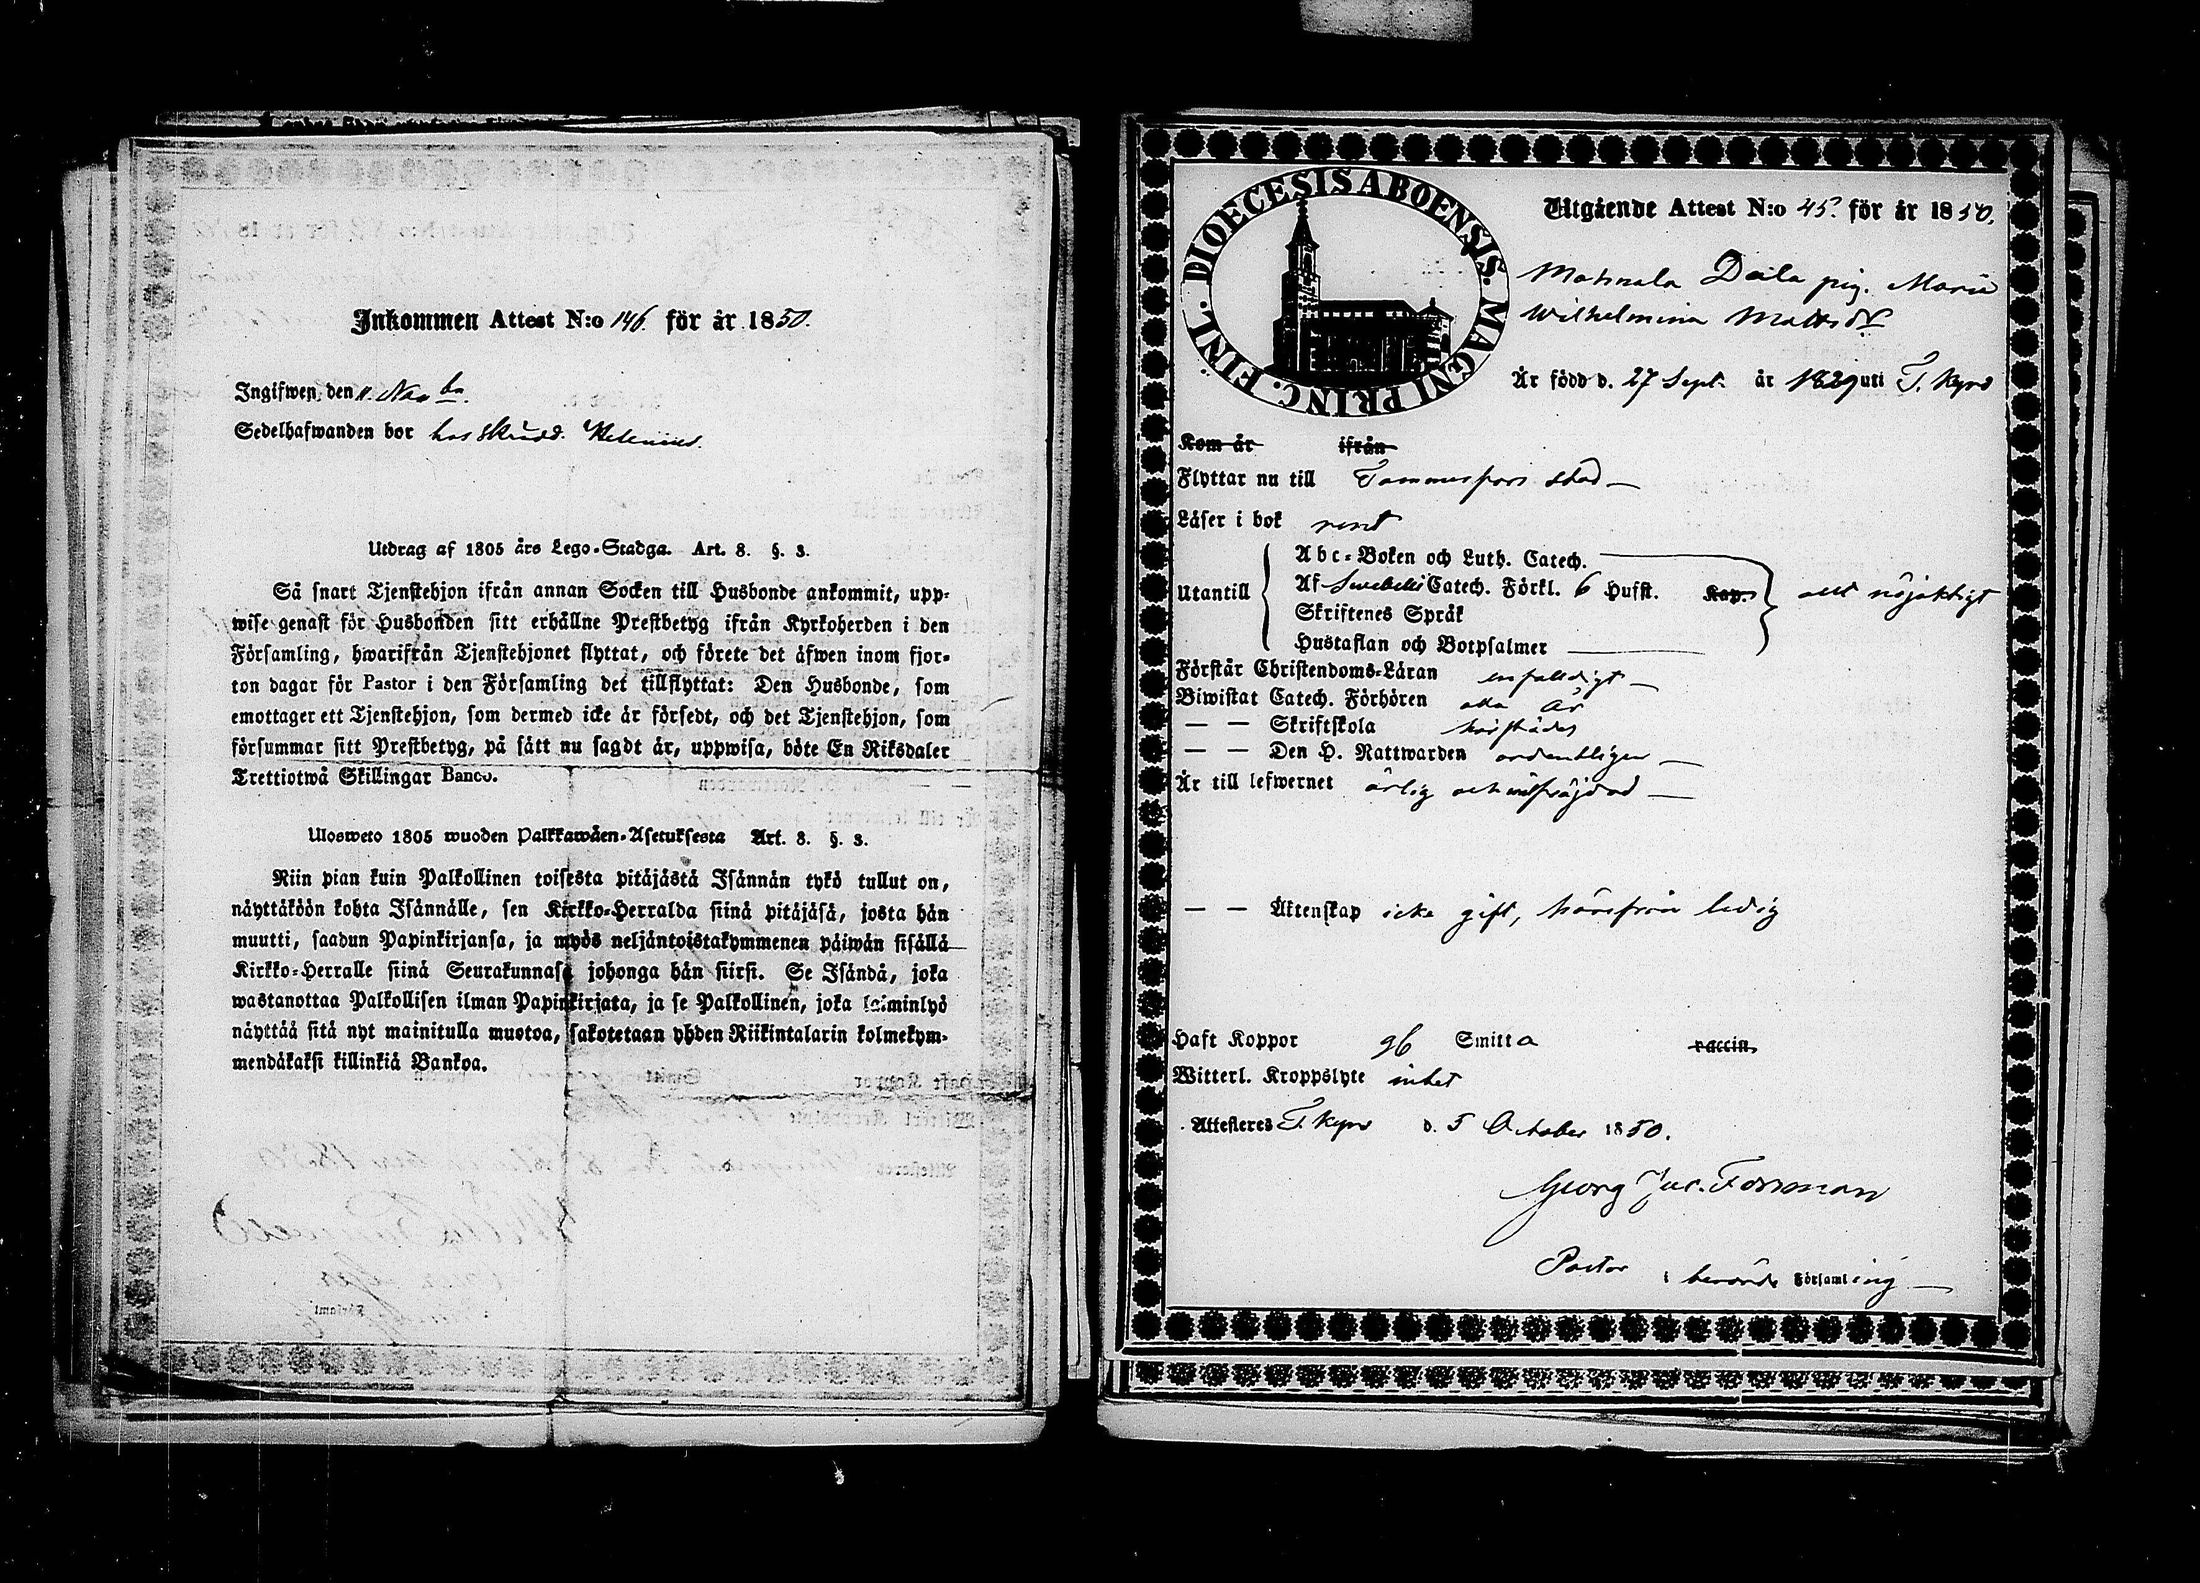 Inkommen Attest N:o 146. för år 1850.
Ingifwen, den 11 Novbr.
Sedelhafwanden bor hos Skrädd. Helenius.
Utdrag af 1805 års Lego-Stadga. Art. 8. §. 3.
Så snart Tjenstehjon ifrån annan Socken till Husbonde ankommit, upp-
wise genast för Husbonden sitt erhållne Prestbetyg ifrån Kyrkoherden i den
Församling, hwarifrån Tjenstehjonet flyttat, och förete det äfwen inom fjor-
ton dagar för Pastor i den Församling det tillflyttat: Den Husbonde, som
emottager ett Tjenstehjon, som dermed icke är försedt, och det Tjenstehjon, som
försummar sitt Prestbetyg, på sätt nu sagdt är, uppwisa, böte En Riksdaler
Trettiotwå Skillingar Banco.
Ulosweto 1805 wuoden Palkkawäen-Asetuksesta Art. 8. §. 3.
Niin pian kuin Palkollinen toisesta pitäjästä Isännän tykö tullut on,
näyttäköön kohta Isännälle, sen Kirkko-Herralda siinä pitäjäsä, josta hän
muutti, saadun Papinkirjansa, ja myös neljäntoistakymmenen päiwän sisällä
Kirkko-Herralle siinä Seurakunnasa johonga hän siirsi. Se Isändä, joka
wastanottaa Palkollisen ilman Papinkirjata, ja se Palkollinen, joka laiminlyö
näyttää sitä nyt mainitulla muotoa, sakotetaan yhden Riikintalarin kolmekym-
mendäkaksi killinkiä Bankoa.
DIOECESIS ABOENSIS. MAGNI PRINC. FINL.
Utgående Attest N:o 45. för år 1850.
Matnala Daila pig. Maria
Wilhelmina Mattsdr
Är född d. 27 Sept. år 1829 uti T. Kyro
Kom år ifrån
Flyttar nu till Tammerfors stad
Läser i bok rent
Abc-Boken och Luth. Catech.
Utantill Af Swebelii Catech. Förkl. 6 Hufst. Kap. allt nöjaktigt
Skriftenes Språk
Hustaflan och Botpsalmer
Förstår Christendoms-Läran enfaldigt
Biwistat Catech. Förhören alla år
— — Skriftskola
— — Den H. Nattwarden ordentligen
Är till lefwernet ärlig och wälfräjdad
— — Äktenskap icke gift, härifrån ledig
Haft Koppor Smitta vaccin,
Witterl. Kroppslyte intet
Attesteres T. Kyro d. 5 October 1850.
Georg Jac. Forsman
Pastor i berörde Församling